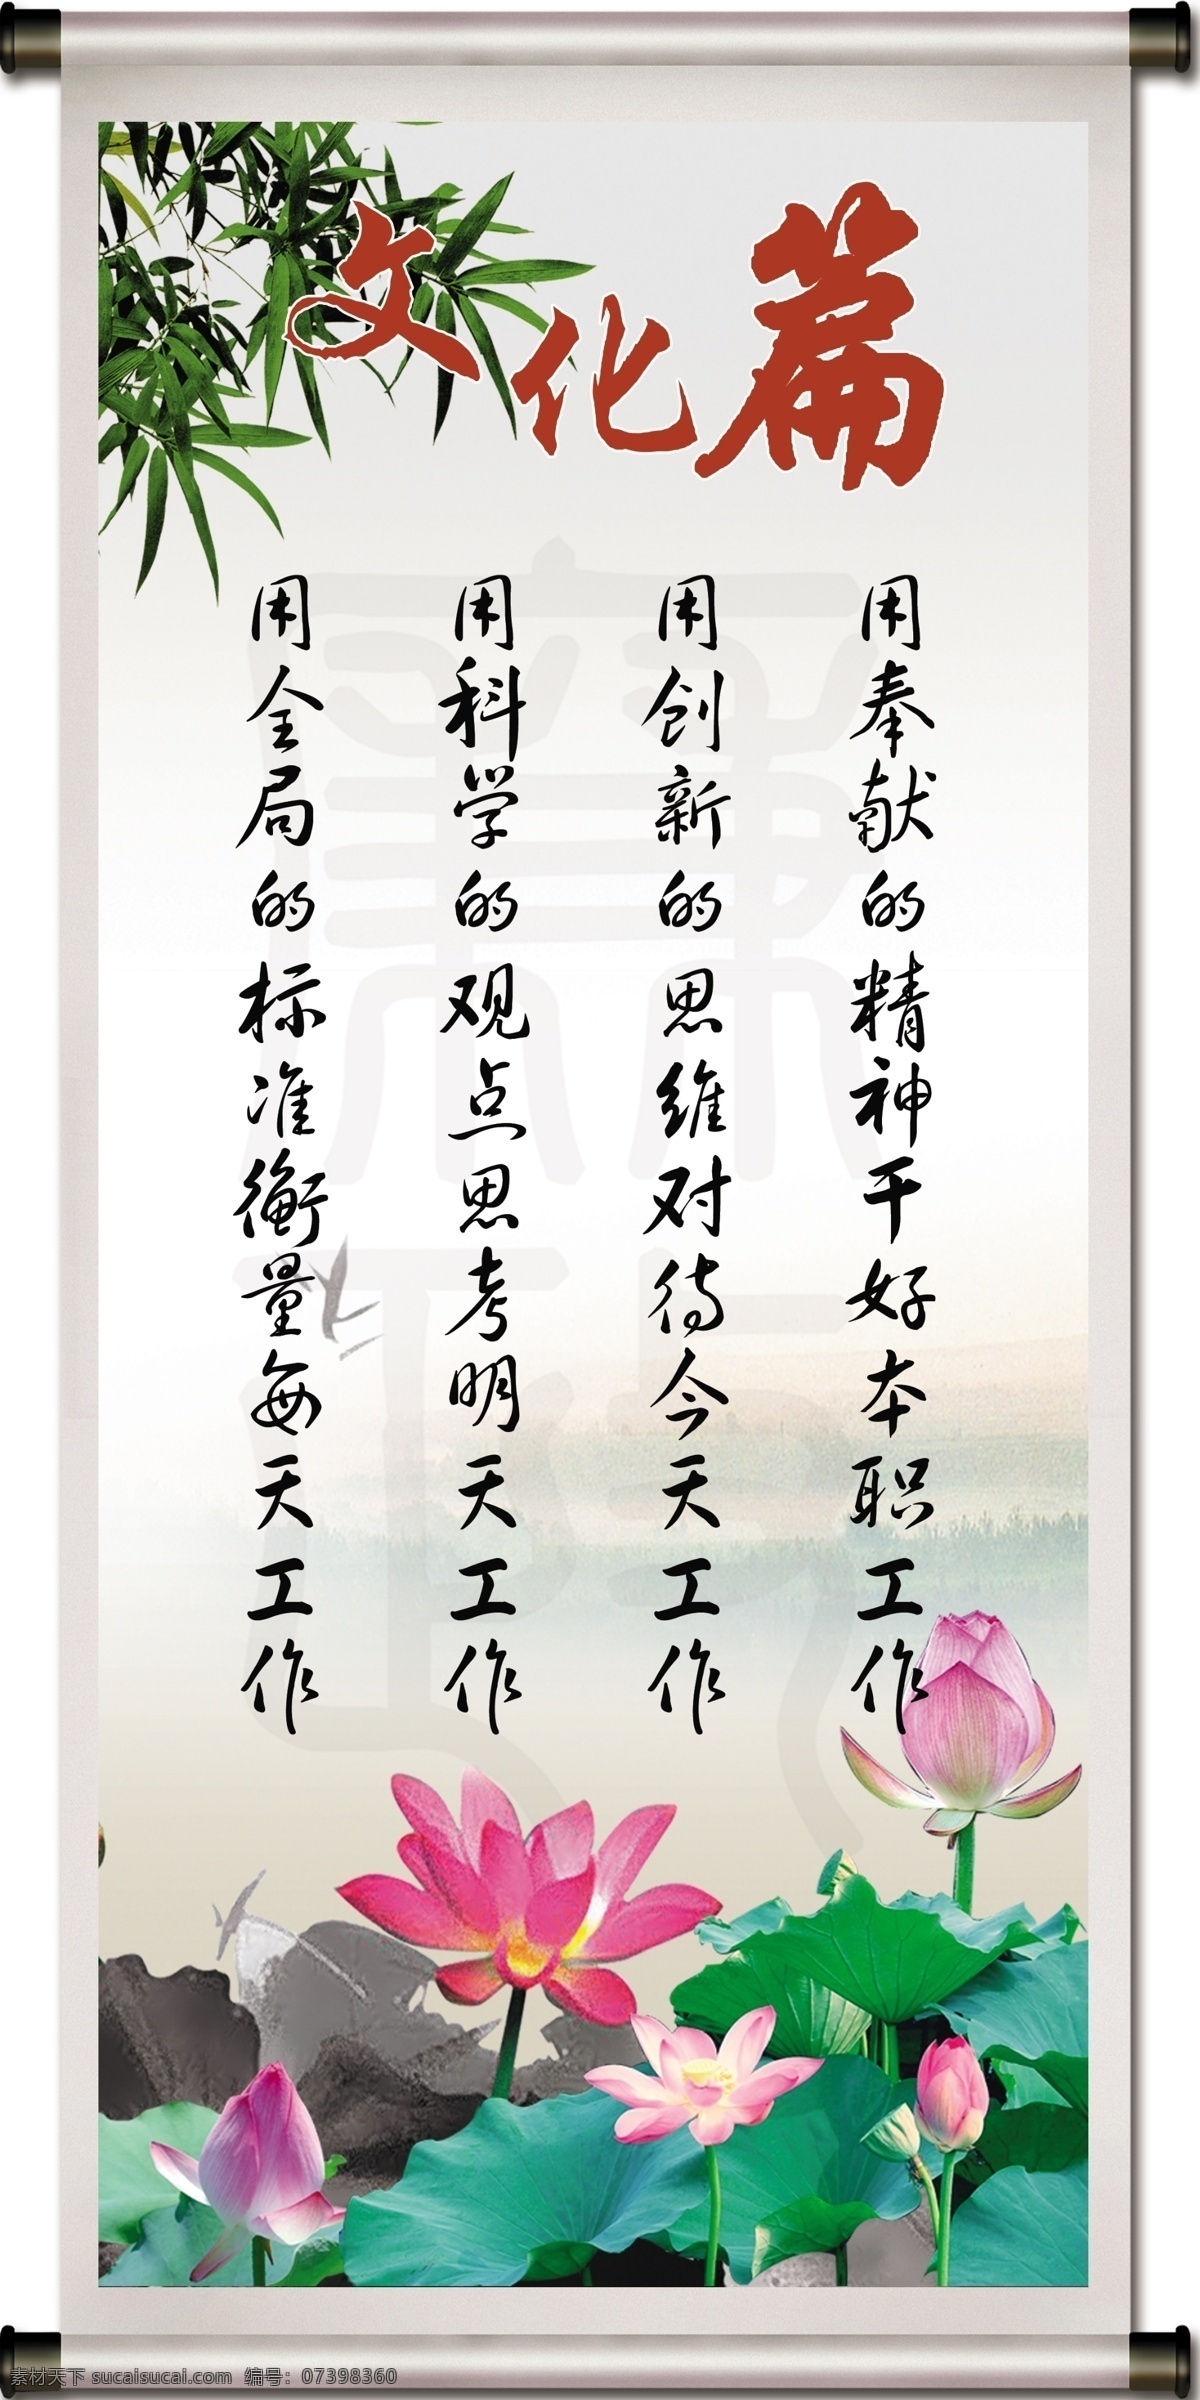 文化篇
用奉献的精神干好本职工作
用创新的思维对待今天工作
用科学的观点思考明天工作
用全局的标准衡量每天工作
素材天下 sucaisucai.com 编号: 07398360